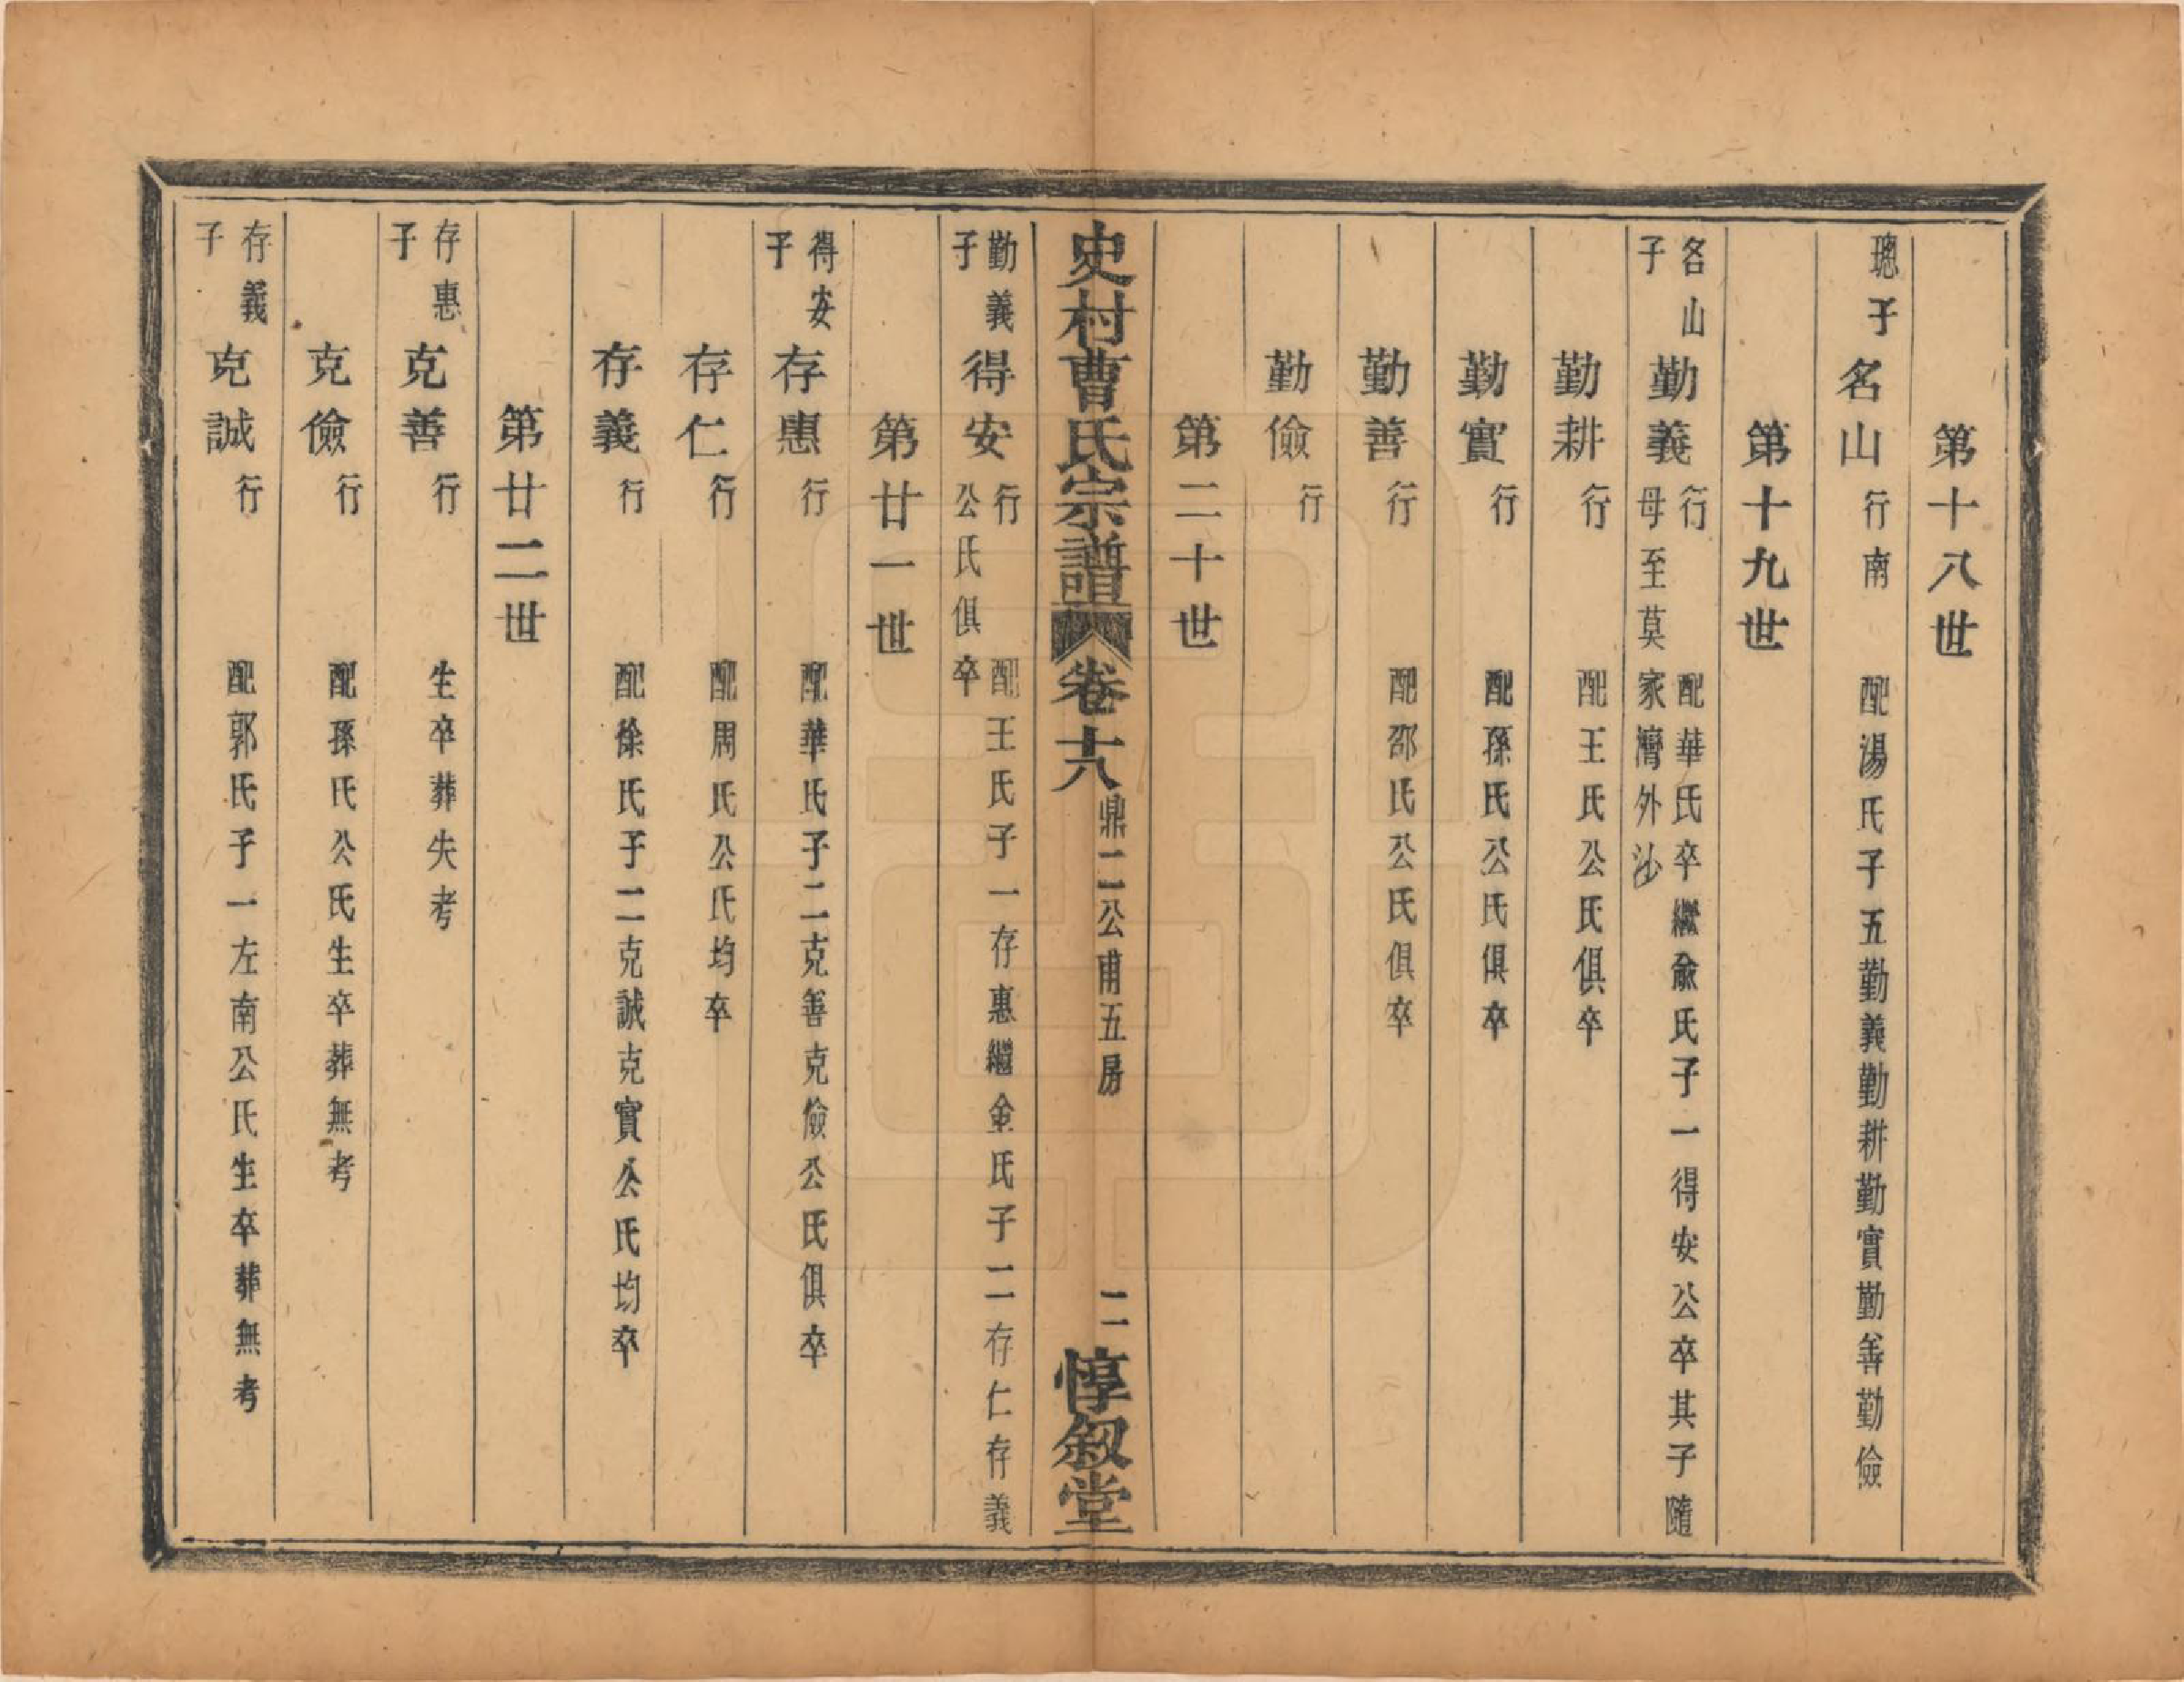 第十八世
璁子 名山 行南 配湯氏子五勤義勤耕勤實勤善勤儉
第十九世
名山子 勤義 行 配華氏卒繼俞氏子一得安公卒其子隨
母至莫家灣外沙
勤耕 行 配王氏公氏俱卒
勤實 行 配孫氏公氏俱卒
勤善 行 配邵氏公氏俱卒
勤儉 行
第二十世
史村曹氏宗譜 卷十八 鼎二公甫五房 二 惇叙堂
勤義子 得安 行 配王氏子一存惠繼金氏子二存仁存義
公氏俱卒
第廿一世
得安子 存惠 行 配華氏子二克善克儉公氏俱卒
存仁 行 配周氏公氏均卒
存義 行 配徐氏子二克誠克實公氏均卒
第廿二世
存惠子 克善 行 生卒葬失考
克儉 行 配孫氏公氏生卒葬無考
存義子 克誠 行 配郭氏子一左南公氏生卒葬無考